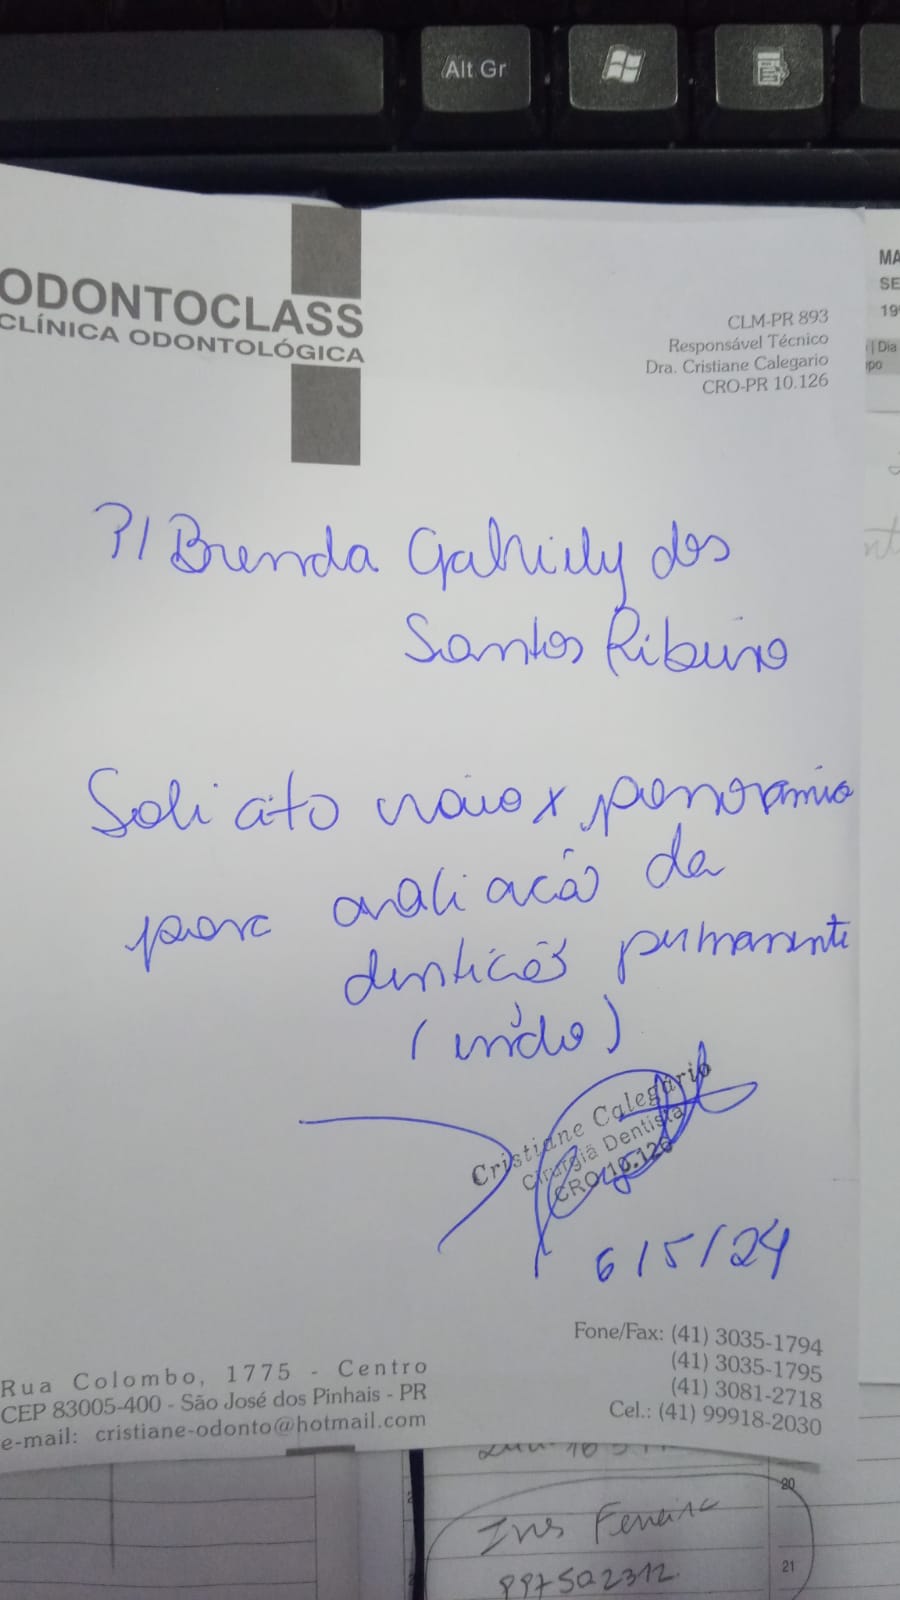 Alt Gr
ODONTOCLASS
CLÍNICA ODONTOLÓGICA
CLM-PR 893
Responsável Técnico
Dra. Cristiane Calegario
CRO-PR 10.126
MA
SE
19
| Dia
po
P/ Brenda Gabriely dos
Santos Ribeiro
Solicito raio x panoramico
para avaliação da
dentição permanente
Cristiane Calegário
Cirurgiã Dentista
CRO 10.126
6/5/24
Fone/Fax: (41) 3035-1794
(41) 3035-1795
(41) 3081-2718
Cel.: (41) 99918-2030
Rua Colombo, 1775 - Centro
CEP 83005-400 - São José dos Pinhais - PR
e-mail: cristiane-odonto@hotmail.com
20
Ines Ferreira
997502312
21